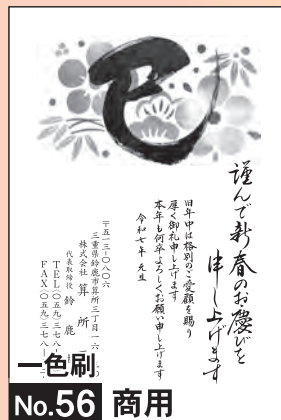 巳
謹んで新春のお慶びを
申し上げます
旧年中は格別のご愛顧を賜り
厚く御礼申し上げます
本年も何卒よろしくお願い申し上げます
令和七年 元旦
〒五一三-〇八〇六
三重県鈴鹿市算所三丁目一六
株式会社 算所
代表取締役 鈴鹿
TEL(〇五九)三七八
FAX(〇五九)三七八
一色刷
No.56 商用